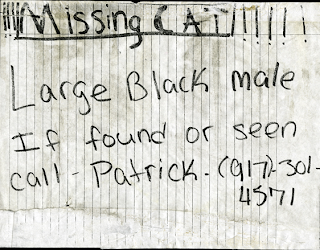 !!!!Missing CAT!!!!!
Large Black male
If found or seen
call - Patrick - (917)-301-
4571